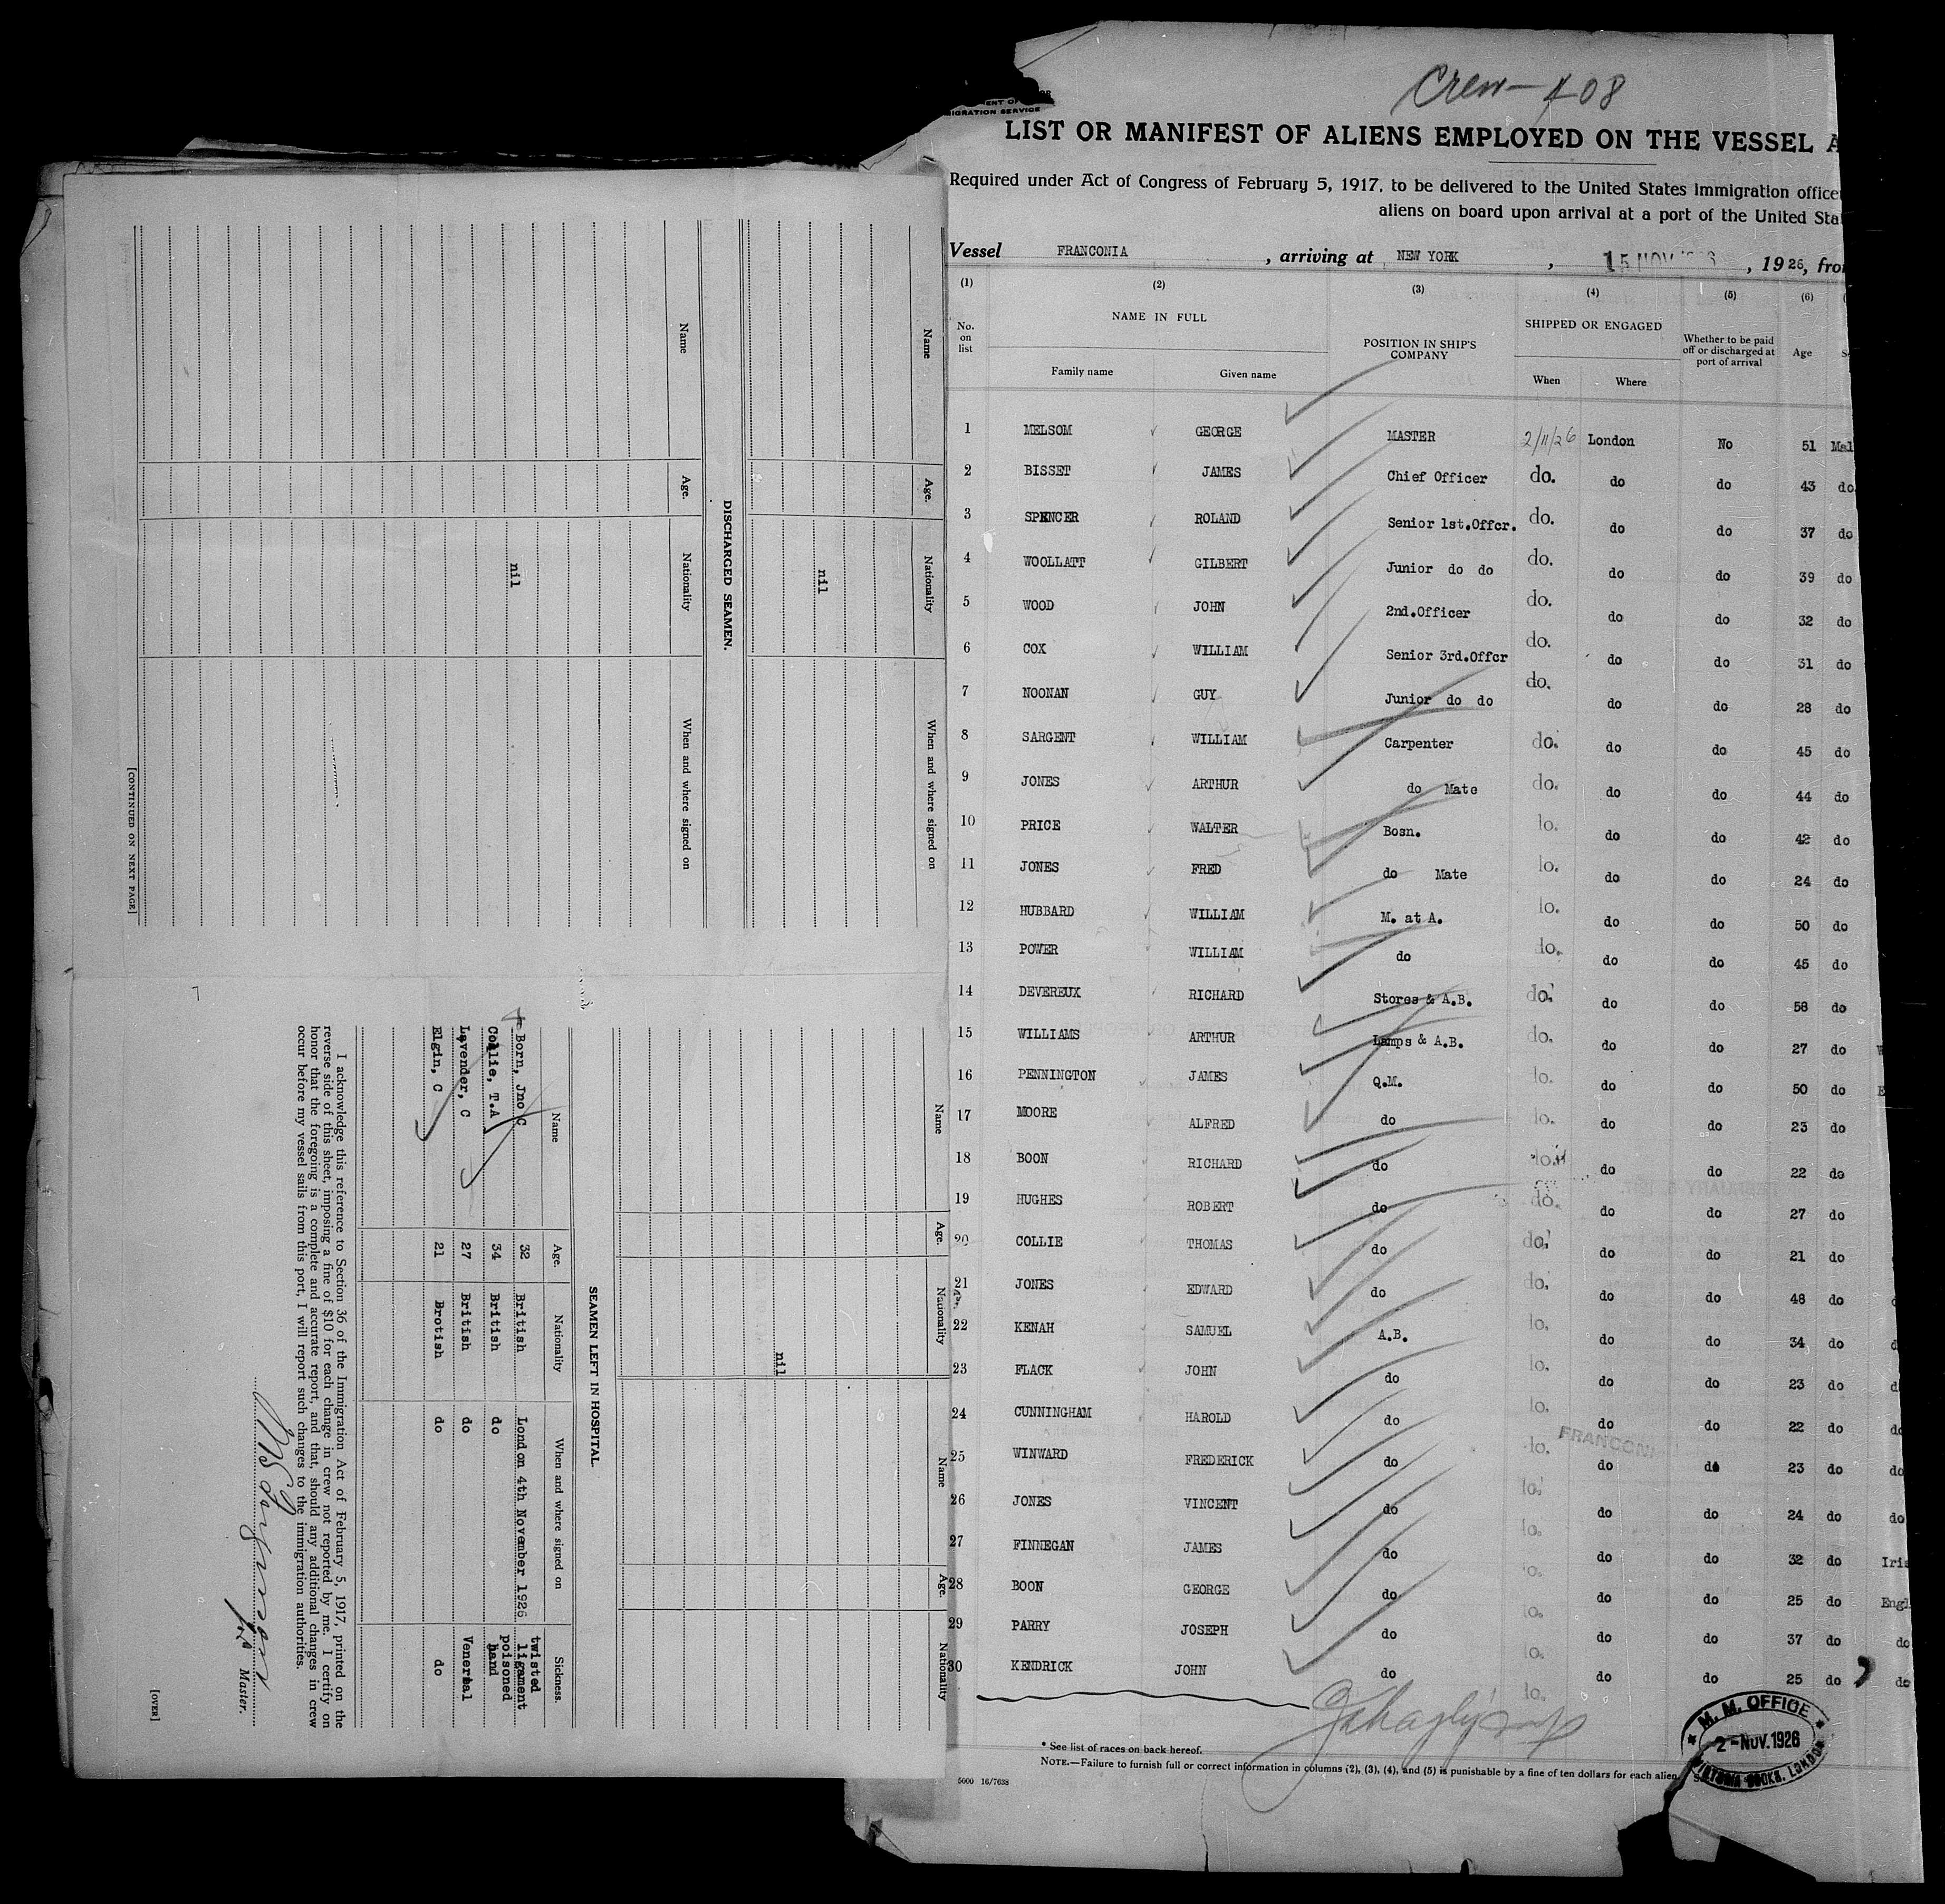 Crew - 408
ENT OF
IGRATION SERVICE
LIST OR MANIFEST OF ALIENS EMPLOYED ON THE VESSEL A
Required under Act of Congress of February 5, 1917, to be delivered to the United States immigration office
aliens on board upon arrival at a port of the United Sta
Vessel FRANCONIA , arriving at NEW YORK , 15 NOV 1926 , 1926, fro
(1) (2) (3) (4) (5) (6)
No. on list NAME IN FULL POSITION IN SHIP'S COMPANY SHIPPED OR ENGAGED Whether to be paid off or discharged at port of arrival Age
Family name Given name When Where
1 MELSOM GEORGE MASTER 2/11/26 London No 51 Mal
2 BISSET JAMES Chief Officer do. do do 43 do.
3 SPENCER ROLAND Senior 1st.Offcr. do. do do 37 do
4 WOOLLATT GILBERT Junior do do do. do do 39 do
5 WOOD JOHN 2nd.Officer do. do do 32 do
6 COX WILLIAM Senior 3rd.Offcr do. do do 31 do
7 NOONAN GUY Junior do do do. do do 28 do
8 SARGENT WILLIAM Carpenter do. do do 45 do
9 JONES ARTHUR do Mate do. do do 44 do
10 PRICE WALTER Bosn. lo. do do 42 do
11 JONES FRED do Mate lo. do do 24 do
12 HUBBARD WILLIAM M. at A. lo. do do 50 do
13 POWER WILLIAM do lo. do do 45 do
14 DEVEREUX RICHARD Stores & A.B. do. do do 58 do
15 WILLIAMS ARTHUR Lamps & A.B. do. do do 27 do
16 PENNINGTON JAMES Q.M. lo. do do 50 do E
17 MOORE ALFRED do lo. do do 23 do
18 BOON RICHARD do lo. do do 22 do
19 HUGHES ROBERT do do. do do 27 do
20 COLLIE THOMAS do do. do do 21 do
21 JONES EDWARD do do. do do 48 do
22 KENAH SAMUEL A.B. lo. do do 34 do d
23 FLACK JOHN do lo. do do 23 do d
24 CUNNINGHAM HAROLD do lo. do do 22 do do
FRANCONIA
25 WINWARD FREDERICK do lo. do do 23 do do
26 JONES VINCENT do lo. do do 24 do do
27 FINNEGAN JAMES do lo. do do 32 do Iris
28 BOON GEORGE do lo. do do 25 do Engl
29 PARRY JOSEPH do lo. do do 37 do do
30 KENDRICK JOHN do lo. do do 25 do do
lo.
* See list of races on back hereof.
NOTE.—Failure to furnish full or correct information in columns (2), (3), (4), and (5) is punishable by a fine of ten dollars for each alien.
5000 16/7638
M. M. OFFICE
2-NOV.1926
VICTORIA DOCKS, LONDON
Name Age. Nationality When and where signed on
nil
DISCHARGED SEAMEN.
Name Age. Nationality When and where signed on
nil
[CONTINUED ON NEXT PAGE]
Name Age. Nationality Name Age. Nationality
nil
SEAMEN LEFT IN HOSPITAL.
Name Age. Nationality When and where signed on Sickness.
Born, Jno C 32 British London 4th November 1926 twisted ligament
Collie, T.A 34 British do poisoned hand
Lavender, C 27 British do Venerial
Elgin, C 21 Brotish do do
I acknowledge this reference to Section 36 of the Immigration Act of February 5, 1917, printed on the
reverse side of this sheet, imposing a fine of $10 for each change in crew not reported by me. I certify on
honor that the foregoing is a complete and accurate report, and that, should any additional changes in crew
occur before my vessel sails from this port, I will report such changes to the immigration authorities.
Master.
[OVER]